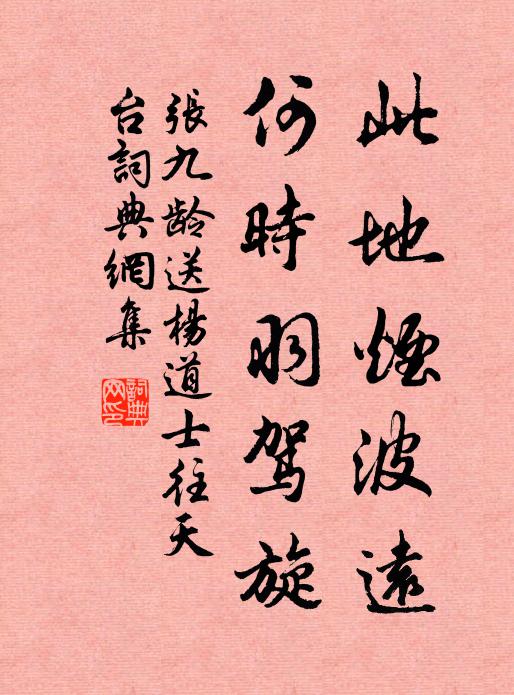 此地煙波遠
何時羽駕旋
張九龄送楊道士往天
台詞典網集
詞典
网印